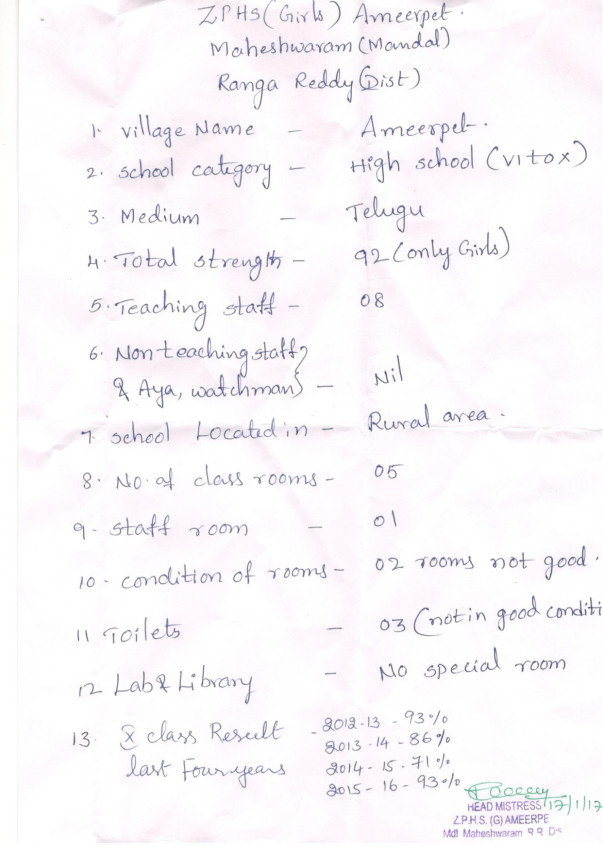 ZPHS (Girls) Ameerpet.
Maheshwaram (Mandal)
Ranga Reddy (Dist)
1. Village Name - Ameerpet.
2. school category - High school (VI to X)
3. Medium - Telugu
4. Total strength - 92 (only Girls)
5. Teaching staff - 08
6. Non teaching staff
& Aya, watchman } - Nil
7. school Located in - Rural area.
8. No. of class rooms - 05
9. staff room - 01
10. condition of rooms - 02 rooms not good.
11 Toilets - 03 (not in good conditi
12 Lab & Library - No special room
13. X class Result - 2012-13 - 93%
2013-14 - 86%
last Four years 2014-15-71%
2015-16-93%
HEAD MISTRESS 17/1/17
Z.P.H.S. (G) AMEERPE
Mdl Maheshwaram R R Dis